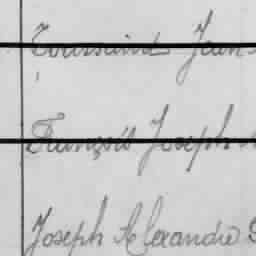 Toussaint Jean
François Joseph
Joseph Alexandre